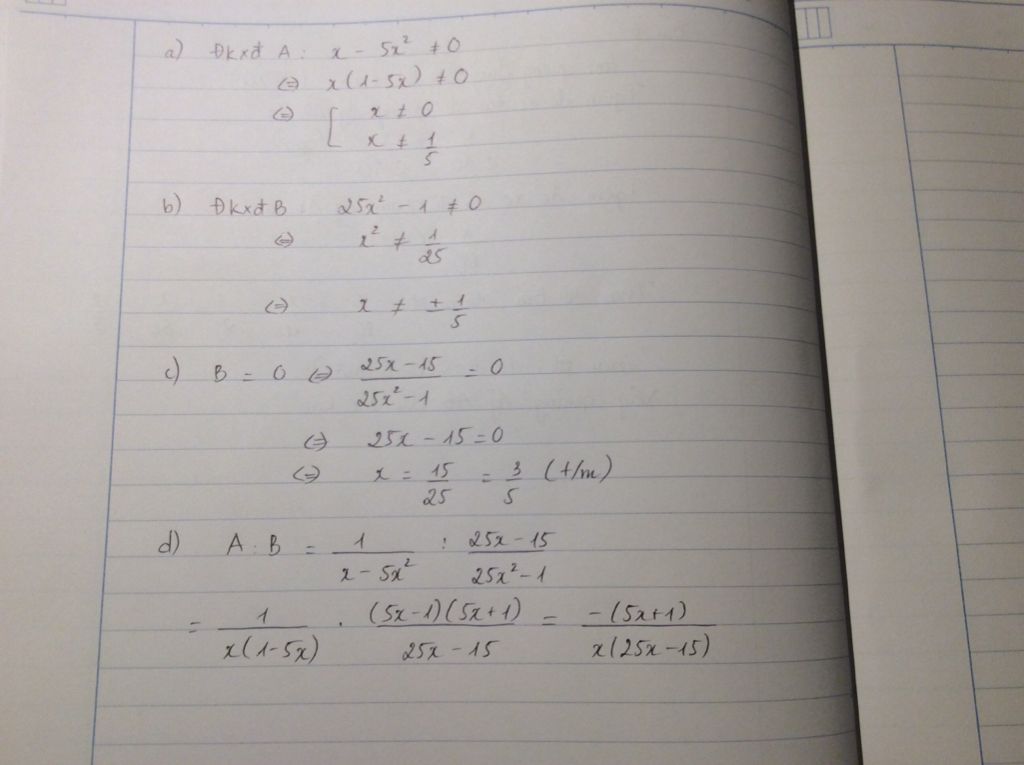 a) Đkxđ A: x - 5x² ≠ 0
⇔ x(1-5x) ≠ 0
⇔ [ x ≠ 0
x ≠ 1/5
b) ĐkxđB 25x² - 1 ≠ 0
⇔ x² ≠ 1/25
⇔ x ≠ ± 1/5
c) B = 0 ⇔ (25x-15)/(25x²-1) = 0
⇔ 25x - 15 = 0
⇔ x = 15/25 = 3/5 (t/m)
d) A : B = 1/(x - 5x²) : (25x - 15)/(25x² - 1)
= 1/(x(1-5x)) . ((5x-1)(5x+1))/(25x - 15) = (-(5x+1))/(x(25x-15))